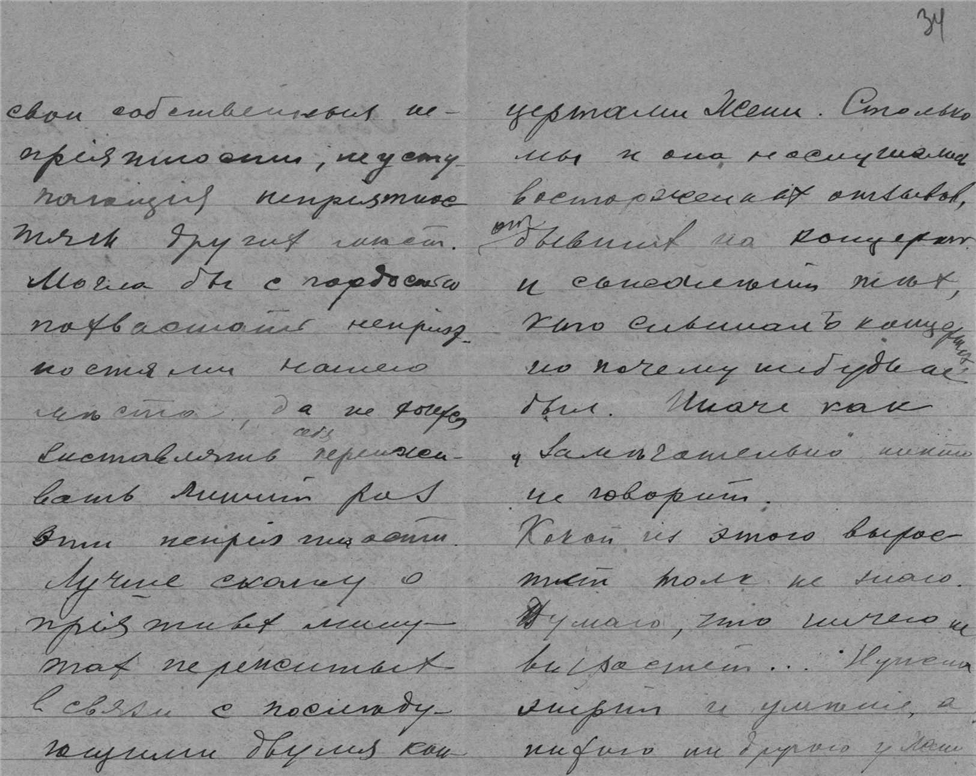 34
свои собственныя не-
прiятности, не усту
пающiя непрiятнос
тям других мест.
Могла бы с гордостью
похвастать непрiят-
ностями нашего
места, да не хочется
заставлять себя пережи-
вать лишнiй раз
эти непрiятности.
Лучше скажу о
прiятных мину-
тах пережитых
в связи с последу-
ющими двумя кон-
цертами Жени. Столько
мы и она наслушались
восторженных отзывов,
от бывших на концертах
и сожаленiй тех,
кто слышалъ о концертах,
но почему нибудь не
был. Иначе как
"замечательно никто
не говорит.
Какой из этого вырос-
тет толк не знаю.
Думаю, что ничего не
выростет... Нужна
энергiя и уменiе, а
ни того ни другого у Жени